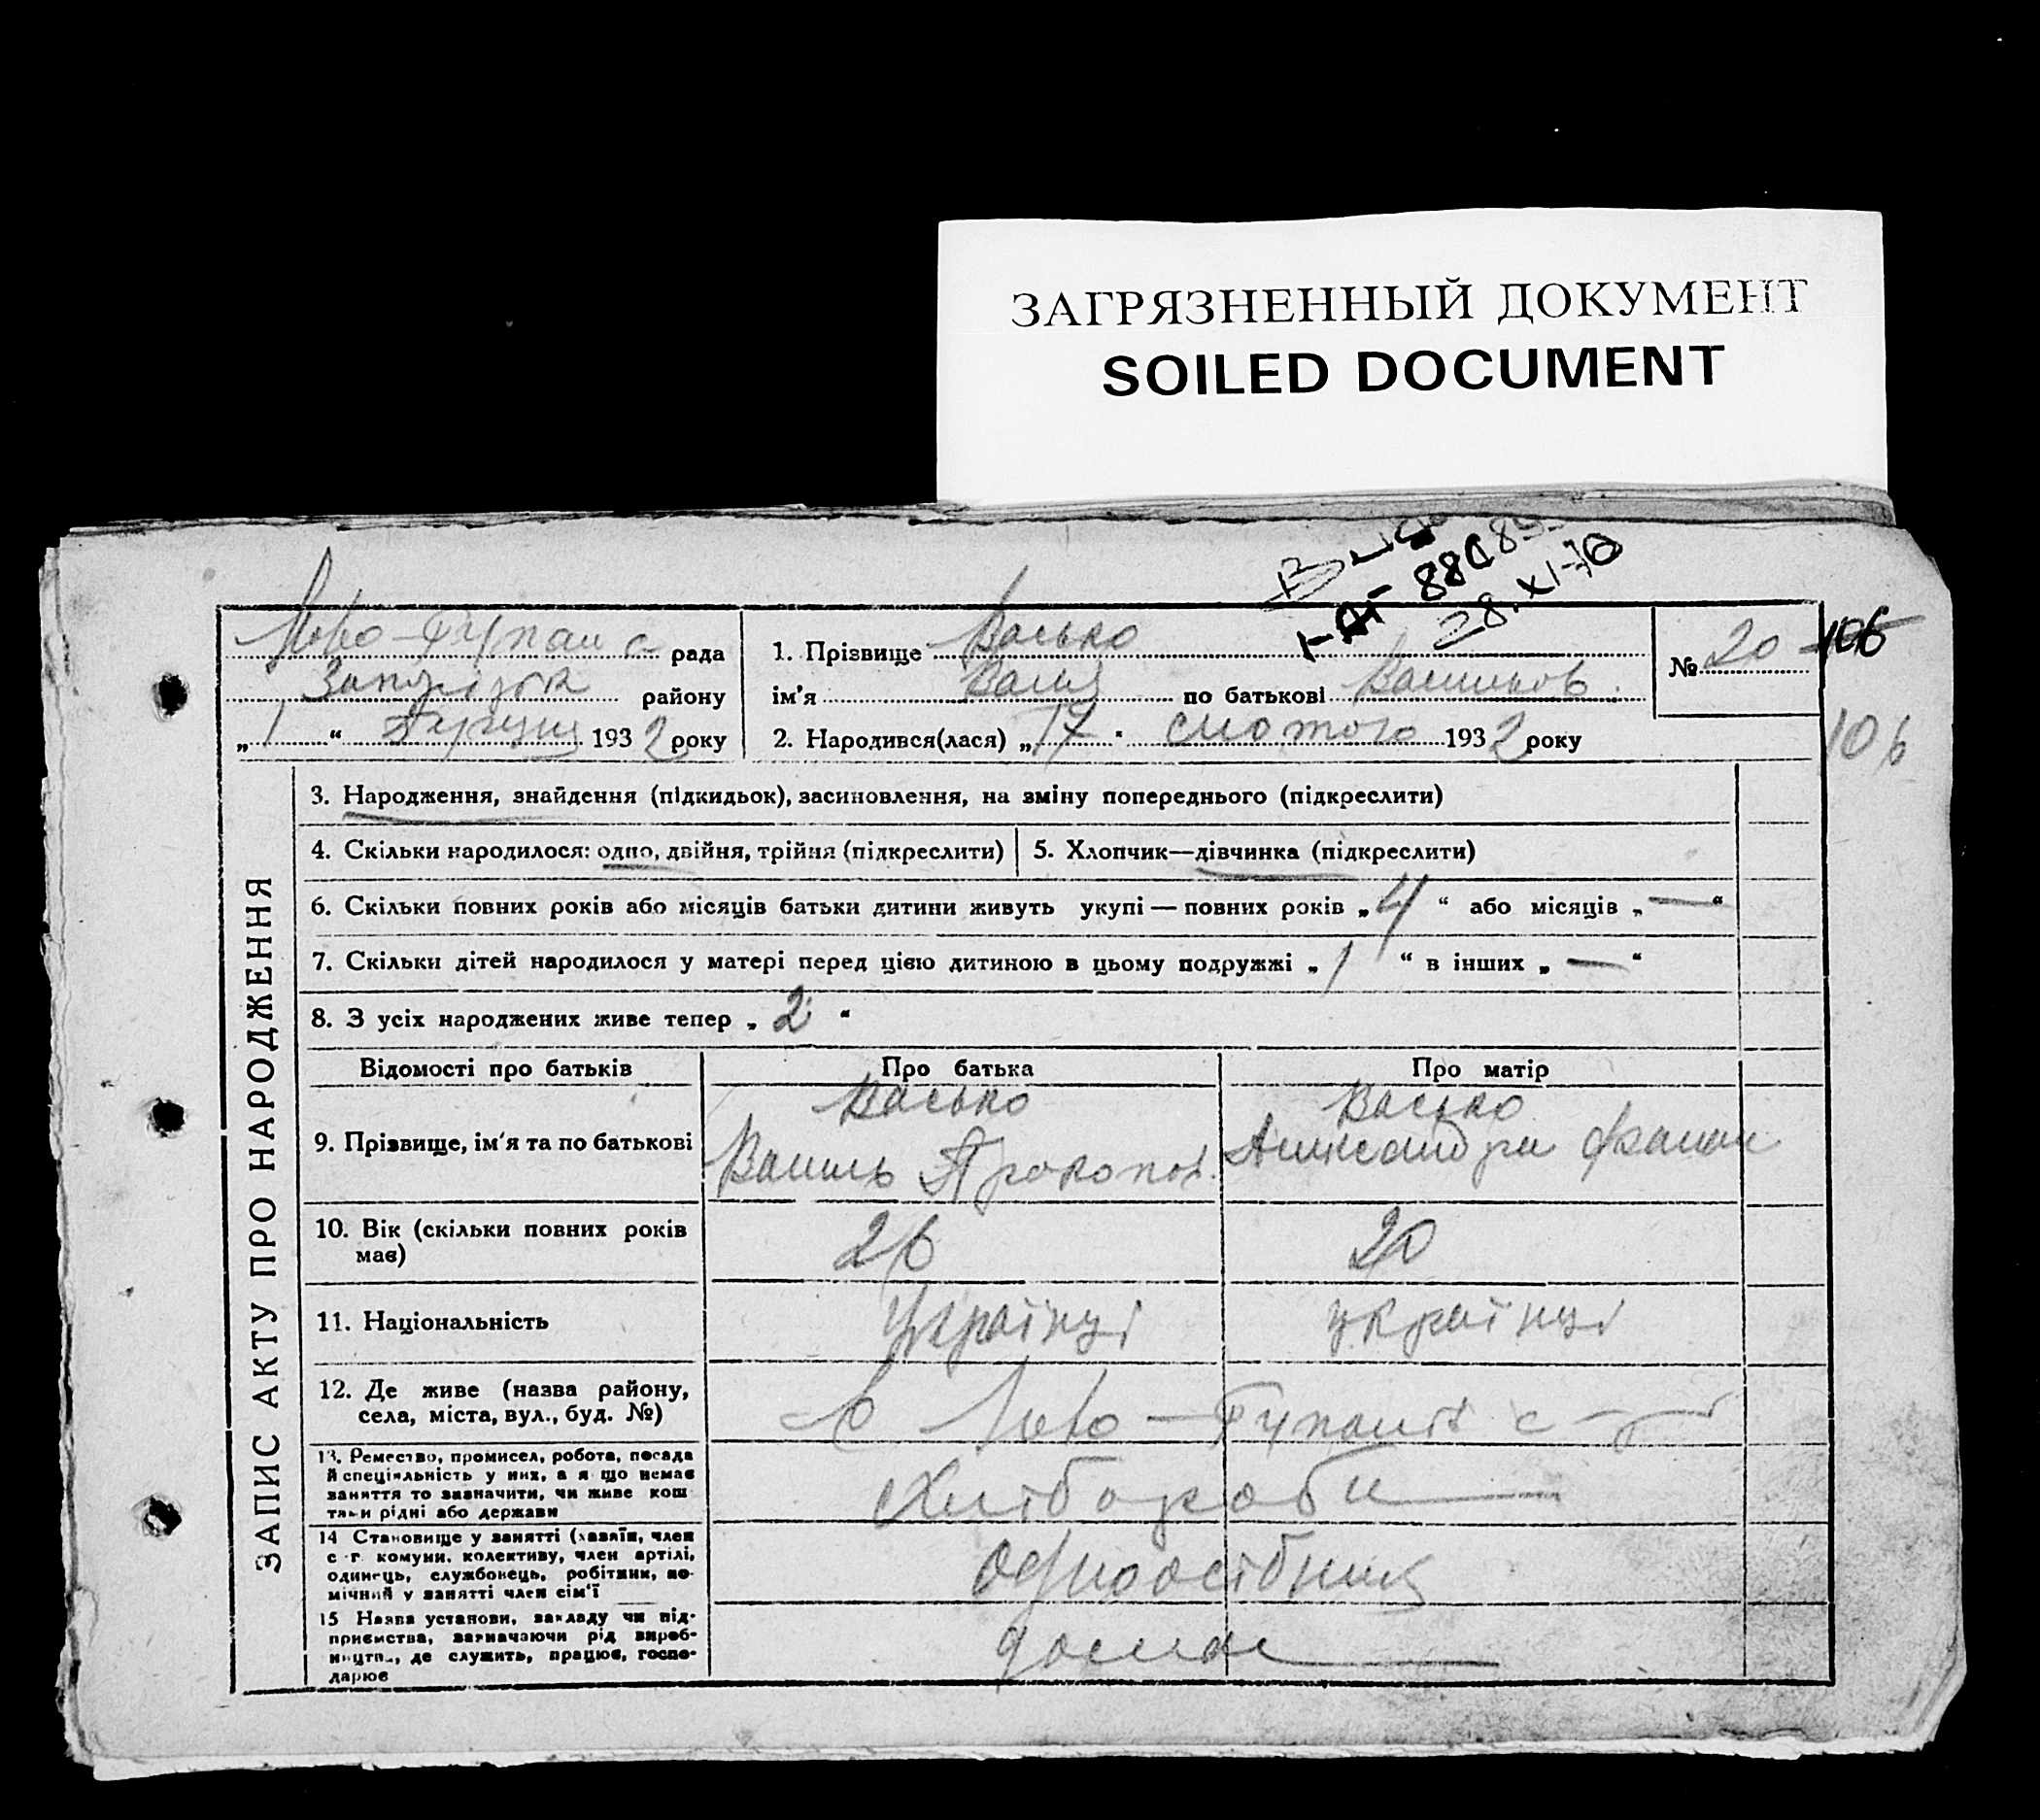 ЗАГРЯЗНЕННЫЙ ДОКУМЕНТ
SOILED DOCUMENT
28.XI-70
Ново-Гупал с рада
Запоріжж району
„1“ 1932 року
1. Прізвище Васько
ім'я по батькові Васильов.
2. Народився(лася) „17“ лютого 1932 року
№ 20 106
106
ЗАПИС АКТУ ПРО НАРОДЖЕННЯ
3. Народження, знайдення (підкидьок), засиновлення, на зміну попереднього (підкреслити)
4. Скільки народилося: одно, двійня, трійня (підкреслити)
5. Хлопчик—дівчинка (підкреслити)
6. Скільки повних років або місяців батьки дитини живуть укупі — повних років „4“ або місяців „—“
7. Скільки дітей народилося у матері перед цією дитиною в цьому подружжі „1“ в інших „—“
8. З усіх народжених живе тепер „2“
Відомості про батьків
Про батька
Про матір
9. Прізвище, ім'я та по батькові
Васько
Василь Прокопов.
Васько
Александра
10. Вік (скільки повних років
має)
26
20
11. Національність
Українці
українці
12. Де живе (назва району,
села, міста, вул., буд. №)
с Ново-Гупалів с-р
13. Ремество, промисел, робота, посада
й спеціяльність у них, а якщо немає
заняття то зазначити, чи живе кош
тами рідні або держави
Хлібороби
14 Становище у занятті (хазяїн, член
с-г комуни, колективу, член артілі,
одинець, службовець, робітник, по-
мічний у занятті член сім'ї
одноосібники
15 Назва установи, закладу чи під-
приємства, зазначаючи рід вироб-
ництва, де служить, працює, госпо-
дарює
дома